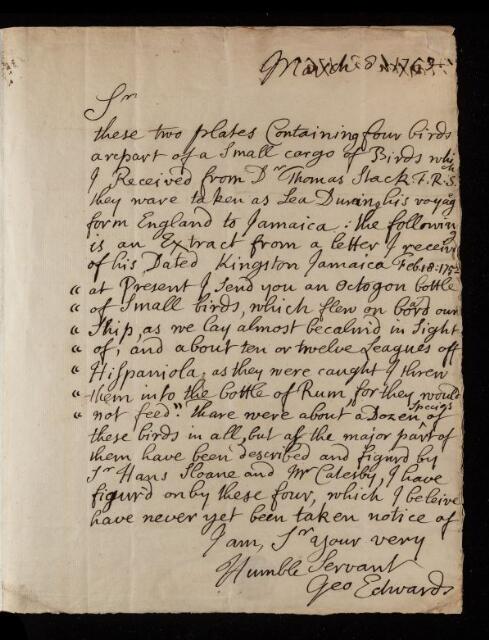 March 8 1763
Sr
these two plates Containing four birds
are part of a Small cargo of Birds which
I Received from Dr Thomas Stack. F.R.S.
they ware taken as Sea During his voyag
form England to Jamaica; the following
is an Extract from a letter I receivd
of his Dated Kingston Jamaica Feb: 18: 1752
" at Present I Send you an Octogon bottle
" of Small birds, which flew on board our
" Ship, as we lay almost becalmd in Sight
" of, and about ten or twelve Leagues off
" Hispaniola: as they were caught I threw
" them into the bottle of Rum, for they would
" not feed". thare were about a Dozen Specigs of
these birds in all, but as the major part of
them have been described and figurd by
Sr Hans Sloane and Mr Catesby, I have
figurd on by these four, which I beleive
have never yet been taken notice of
I am, Sr your very
Humble Servant
Geo Edwards